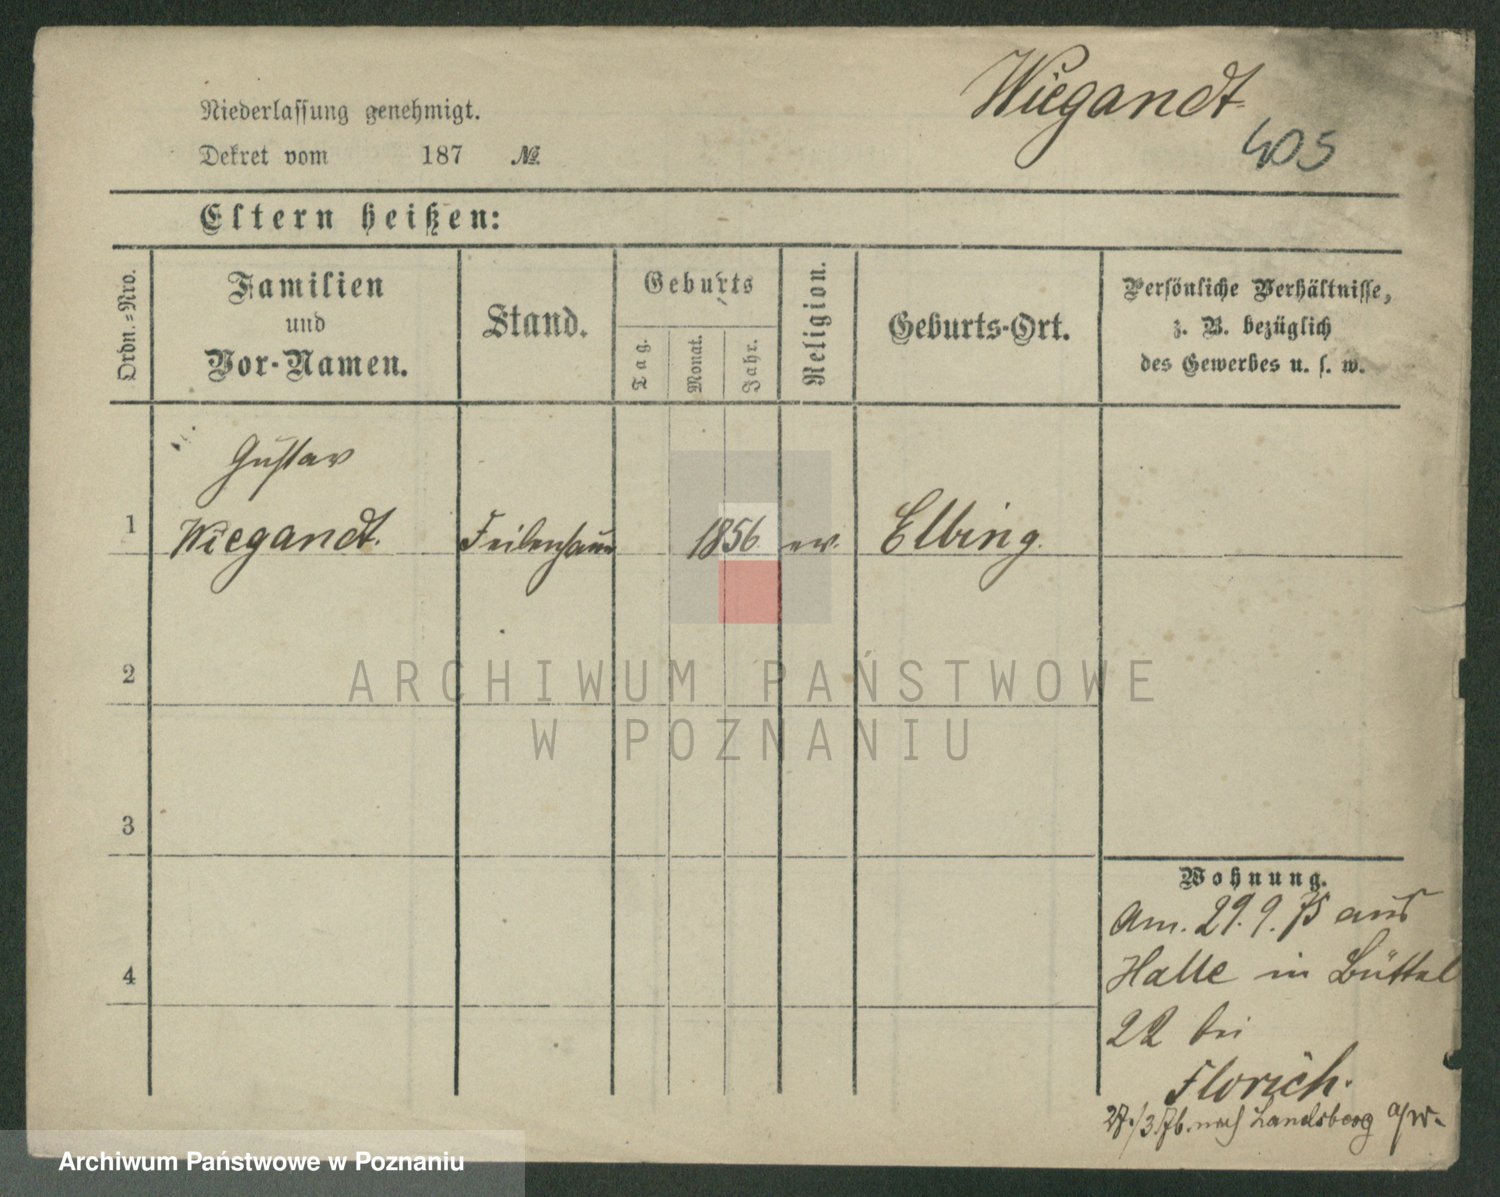 Wiegandt
405
Niederlassung genehmigt.
Dekret vom 187 №
Eltern heißen:
Ordn.-Nro.
Familien
und
Vor-Namen.
Stand.
Geburts
Tag.
Monat.
Jahr.
Religion.
Geburts-Ort.
Persönliche Verhältnisse,
z. B. bezüglich
des Gewerbes u. s. w.
Gustav
1 Wiegandt. Feilenhauer 1856. ev. Elbing.
2
ARCHIWUM PAŃSTWOWE
W POZNANIU
3
4
Wohnung.
Am. 29. 9. 75 aus
Halle in Büttel
22 bei
Florich.
28./3.76. nach Landsberg a/W.
Archiwum Państwowe w Poznaniu